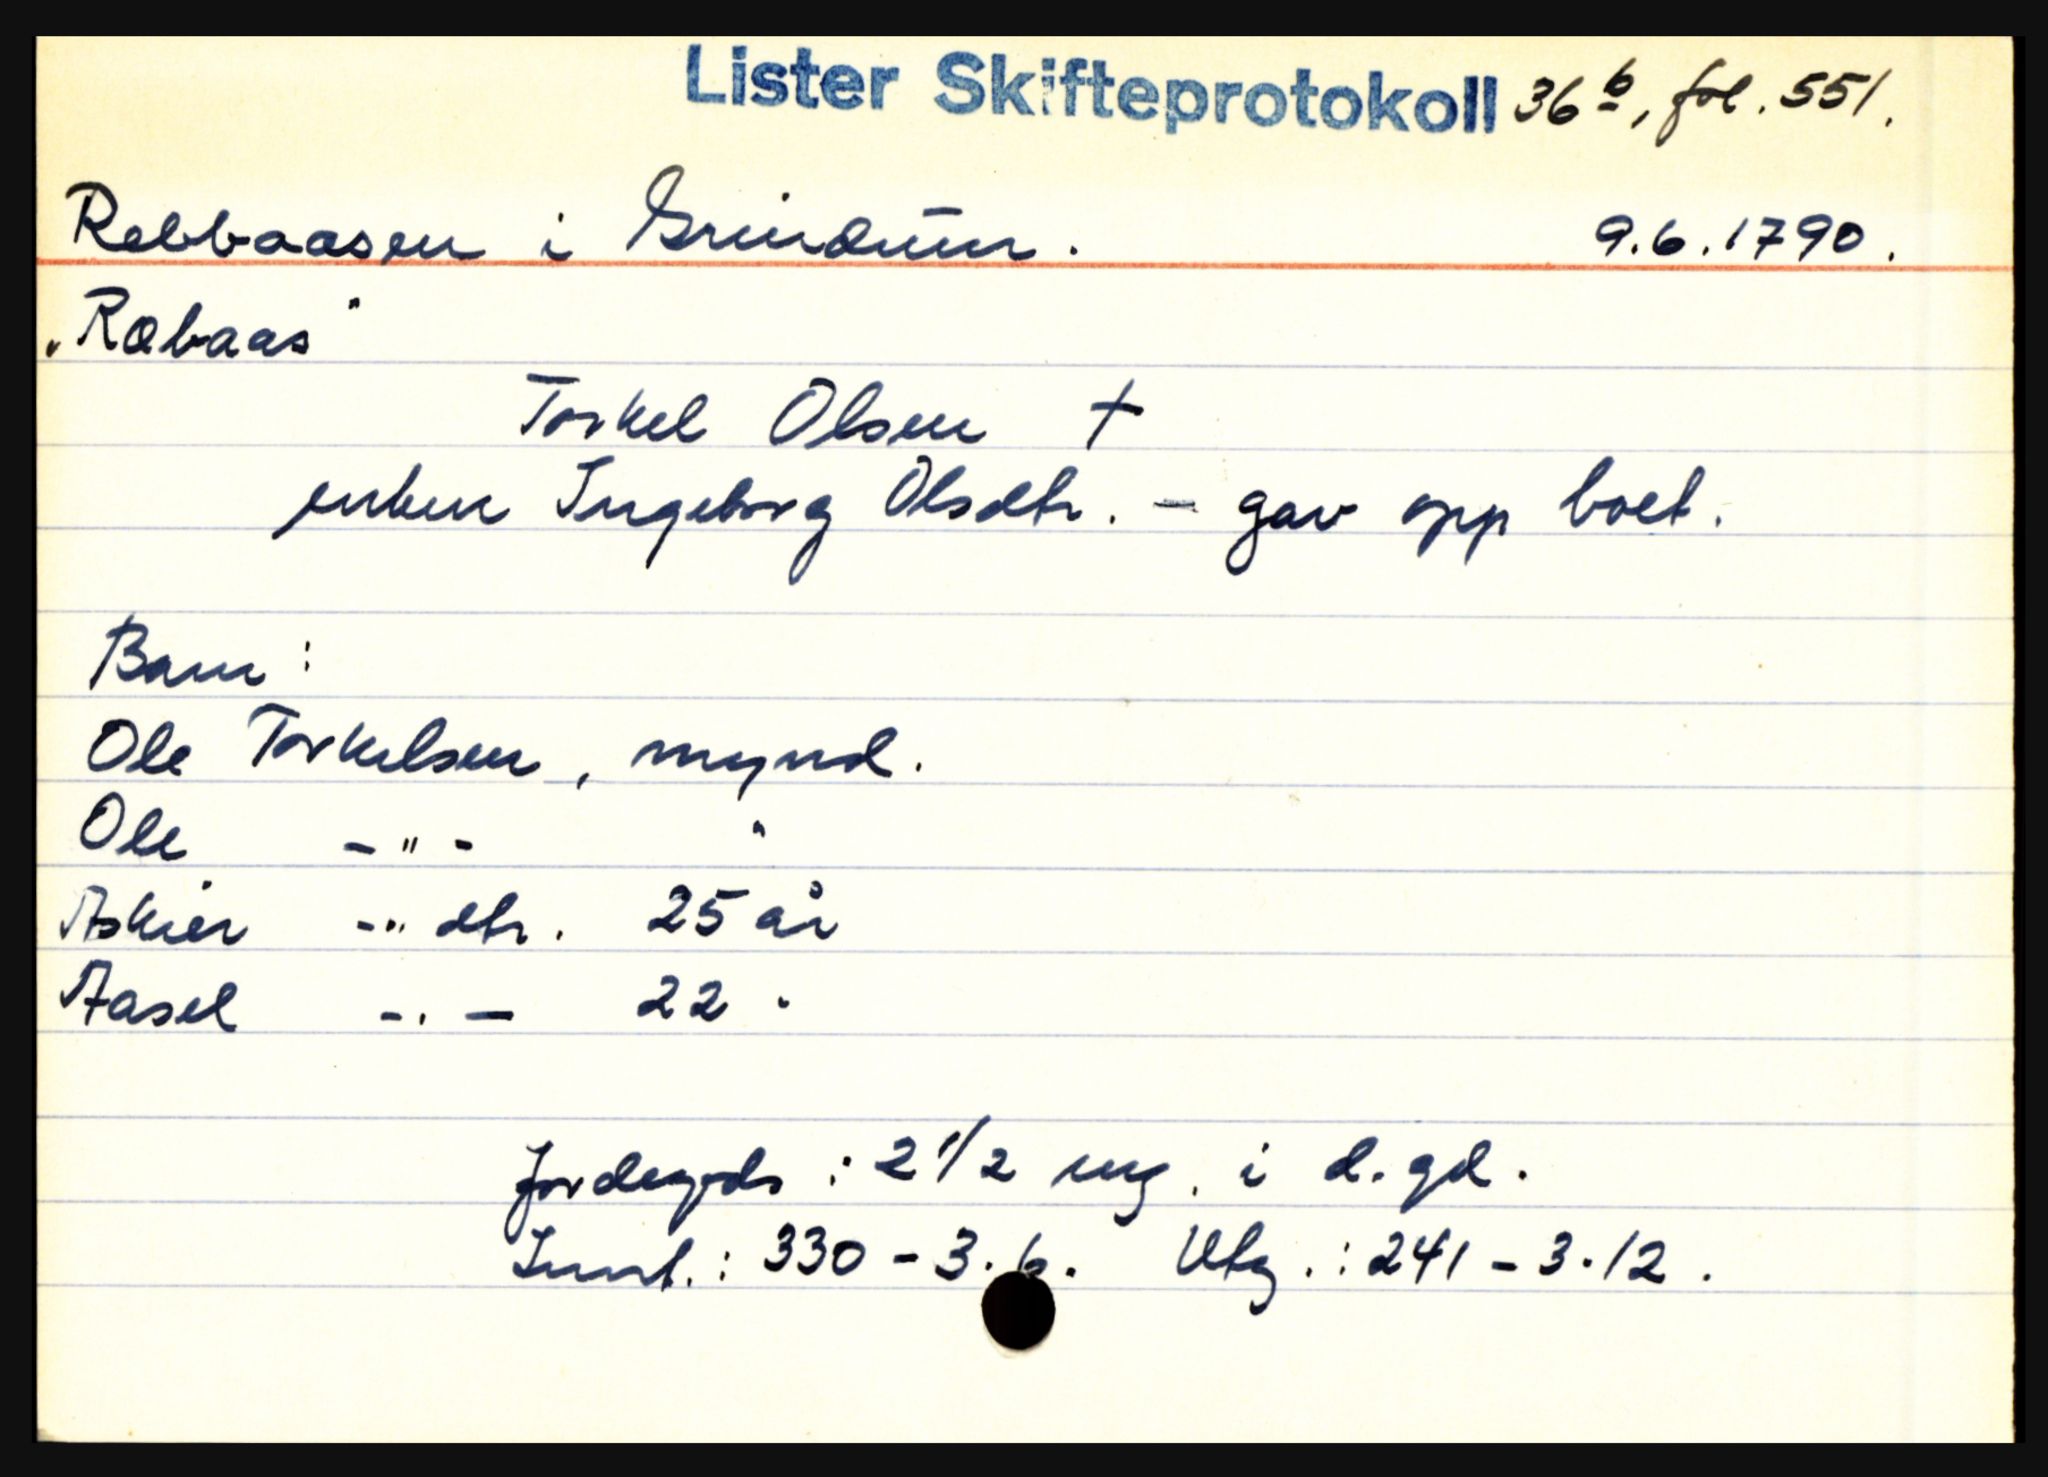 Lister Skifteprotokoll 36 b, fol. 551.
Rebbaasen i Grindum. 9.6.1790.
„Ræbaas"
Torkel Olsen †
enken Ingeborg Olsdtr. – gav opp boet.
Barn:
Ole Torkelsen, mynd.
Ole -"- "
Askier -" dtr. 25 år
Aasel -"- 22 "
Jordegods: 2 1/2 eng. i d. gd.
Innt.: 330 - 3. 6. Utg.: 241 - 3. 12.